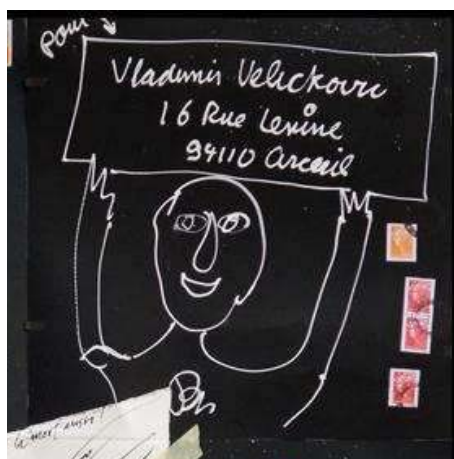 pour
Vladimir Velickovic
16 Rue Lenine
94110 Arcueil